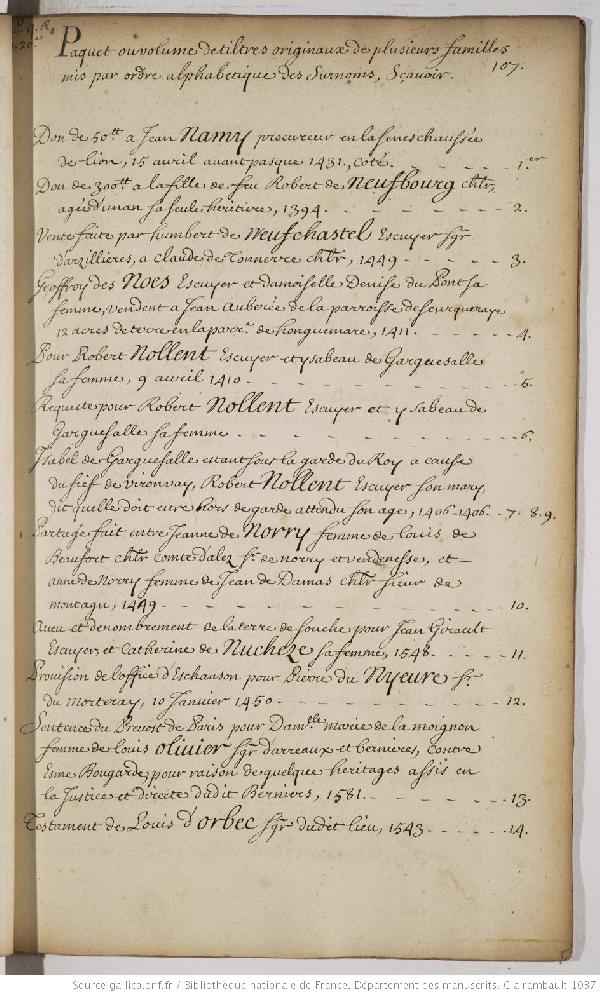 Paquet ou volume de tiltres originaux de plusieurs familles
mis par ordre alphabetique des surnoms, Sçavoir.
107.
Don de 50tt a Jean Namy procureur en la seneschaussée
de lion, 15 avril avant pasque 1431., coté. - - - - - 1.er
Don de 300tt a la fille de feu Robert de Neufbourg chlr,
agée d'un an sa seule heritiere, 1394. - - - - - 2.
Vente faite par humbert de Neufchastel Escuyer sgr
d'arzillieres, a claude de Tonnerre chlr, 1449 - - - - - 3.
Geoffroy des Noes Escuyer et damoiselle Denise du Pont sa
femme, vendent a Jean Auberée de la parroisse de
12 acres de terre en la parr. de honguemare, 1411 - - - - 4.
Pour Robert Nollent Escuyer et ysabeau de Garguesalle
sa femme, 9 avril 1410. - - - - - 5.
Requete pour Robert Nollent Escuyer et ysabeau de
Garguesalle sa femme - - - - - 6.
Isabel de Garguesalle estant sous la garde du Roy a cause
du fief de vironvay, Robert Nollent Escuyer son mary,
dit qu'elle doit estre hors de garde attendu son age, 1406. 1406. - 7. 8. 9.
Partage fait entre Jeanne de Norry femme de louis de
Beaufort chlr comte d'alez sr. de norry et vendenesse, et
anne de Norry femme de Jean de Damas chlr sieur de
montagu, 1449 - - - - - 10.
Aveu et denombrement de la terre de fouche pour Jean Girault
Escuyer, et Catherine de Nucheze sa femme, 1548. - - - - - 11.
Provision de l'office d'Eschanson pour Pierre du Nyeure sr.
du morteray, 10 Janvier 1450 - - - - - 12.
Sentence du Prevost de Paris pour Dam.lle marie de la moignon
femme de louis olivier sgr d'arreaux et bernieres, contre
Esme Bougarde, pour raison de quelque heritages assis en
la Justice et directe dudit Berniers, 1581. - - - - - 13.
Testament de Louis d'orbec sgr dudit lieu, 1543 - - - - - 14.
Source gallica.bnf.fr / Bibliothèque nationale de France. Département des manuscrits. Clairambault 1087